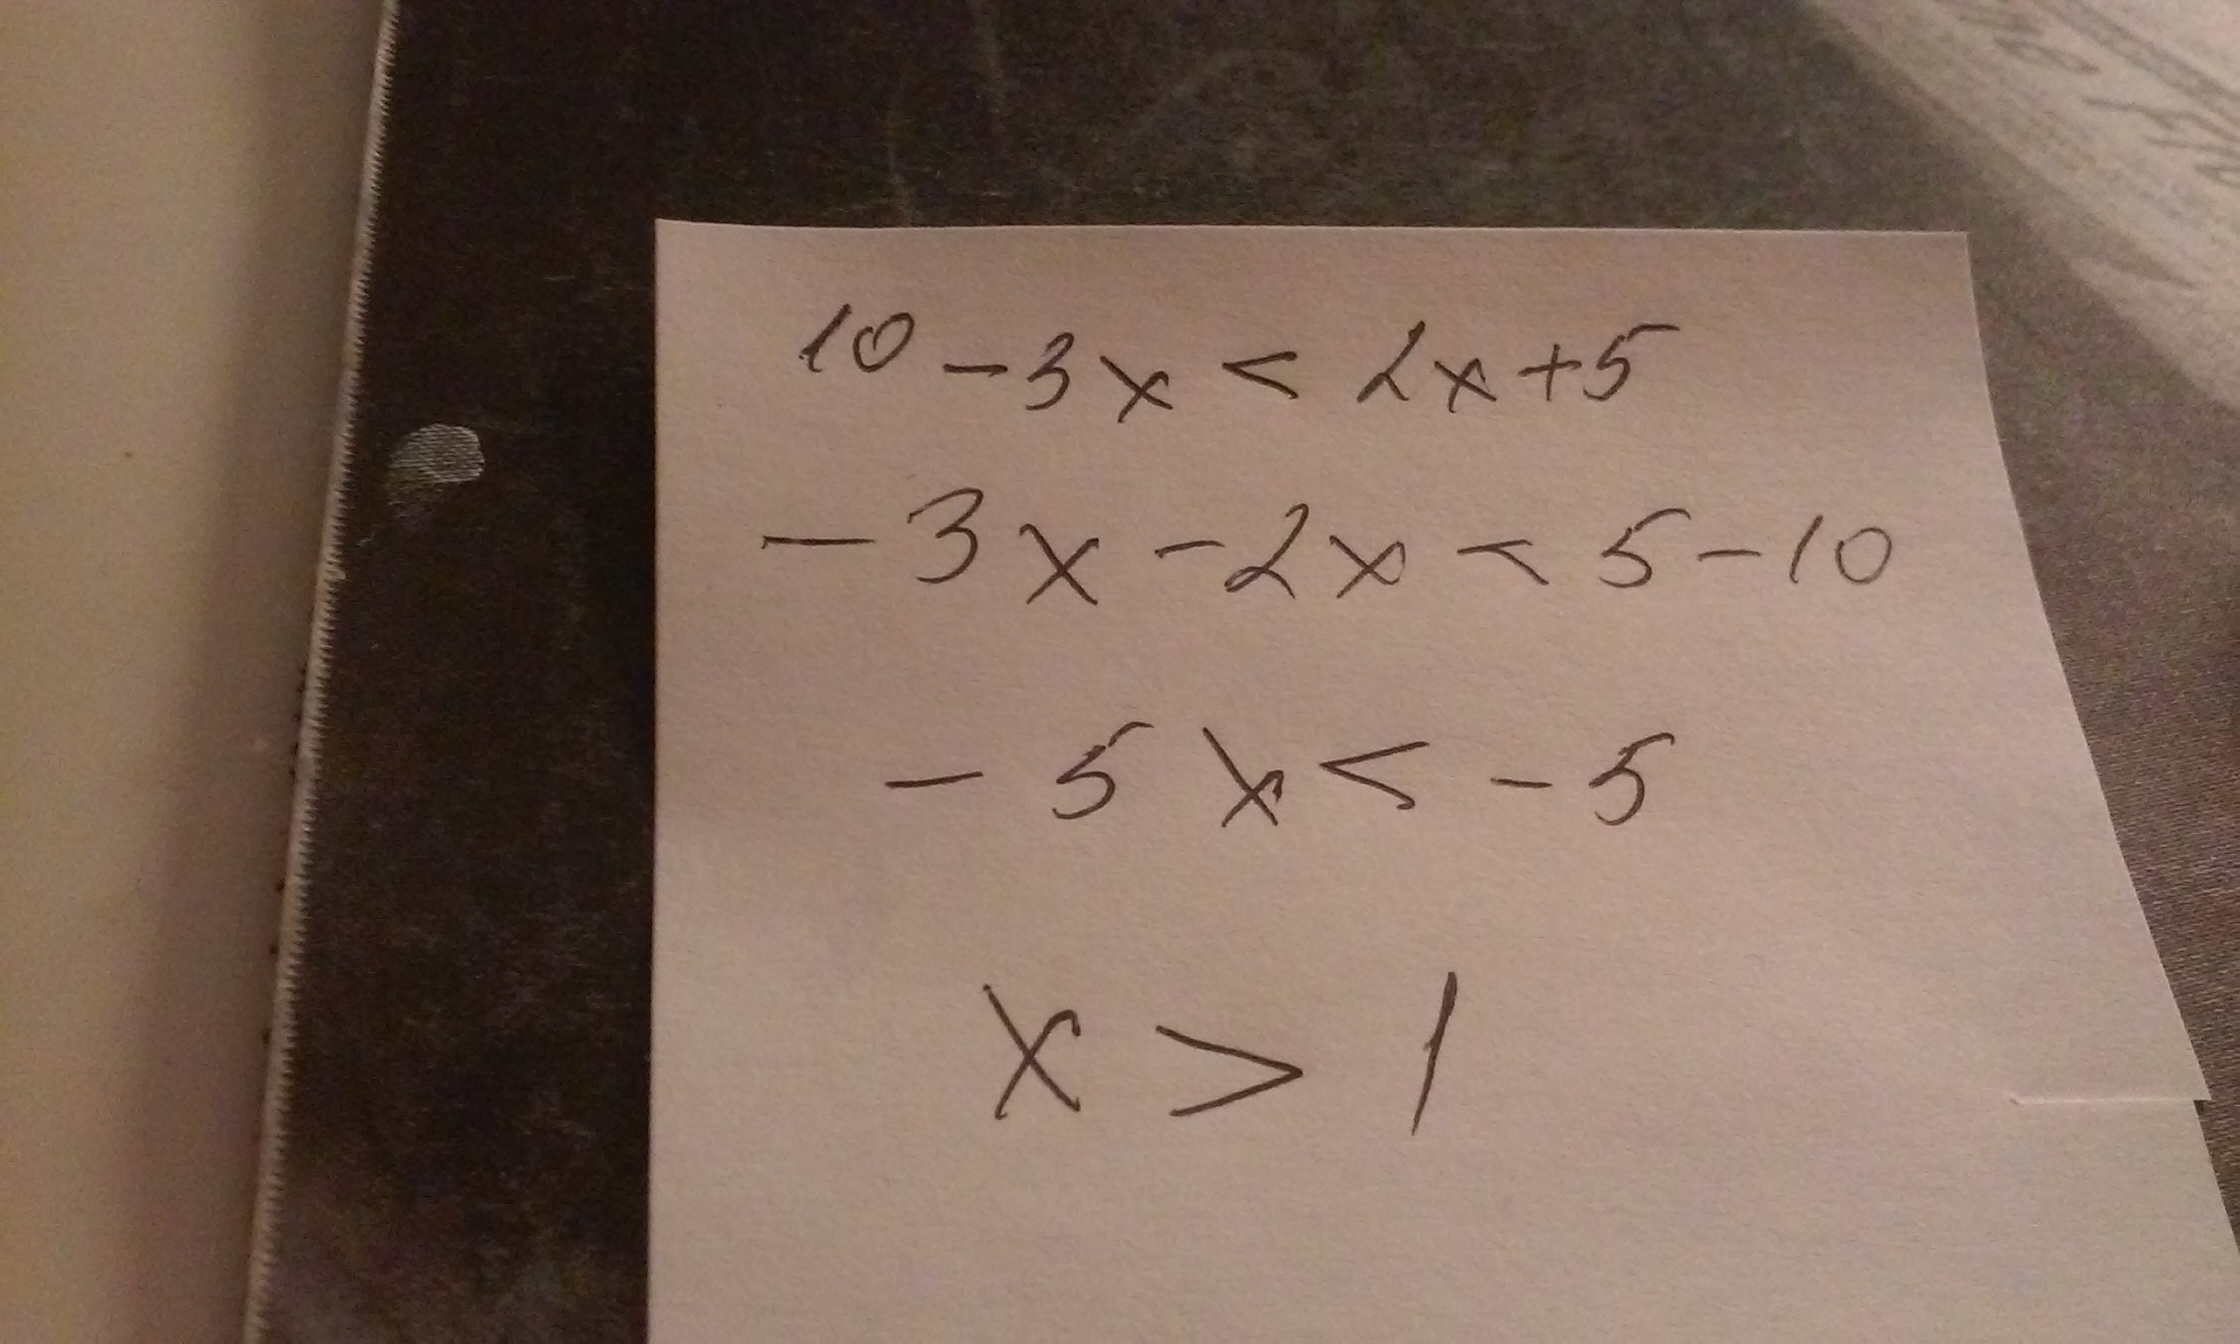 10 - 3x < 2x + 5
- 3x - 2x < 5 - 10
- 5x < - 5
x > 1